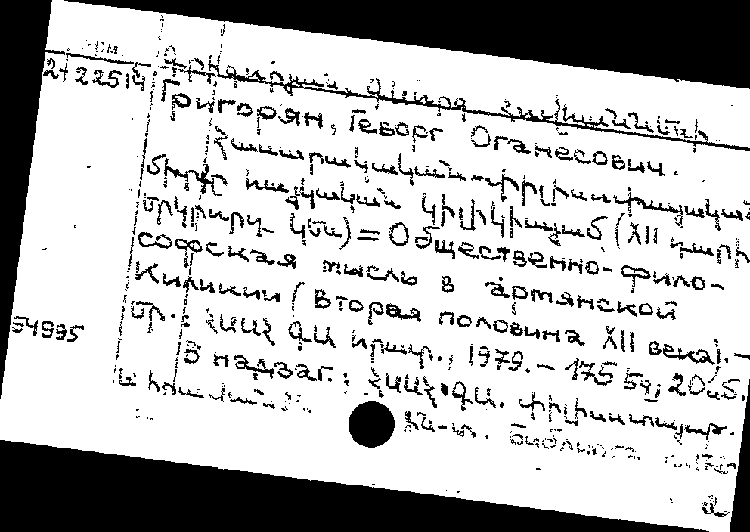 2/22514 Գրիգորյան, Գևորգ Հովհաննեսի
Григорян, Геворг Оганесович.
Հասարակական-փիլիսոփայական
միտքը հայկական Կիլիկիայում (XII դարի
երկրորդ կես) = Общественно-фило-
софская мысль в армянской
Киликии (вторая половина XII века). –
Եր.: ՀՍՍՀ ԳԱ հրատ., 1979. – 175 էջ; 20 սմ.
54995 В надзаг.: ՀՍՍՀ ԳԱ. Փիլիսոփայ.
և իրավունքի ին-տ.
2